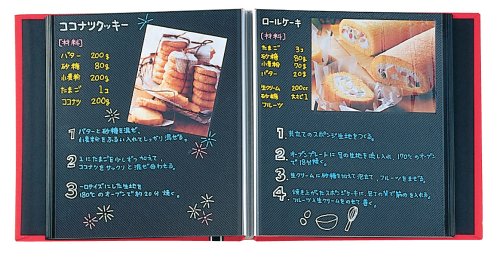 ココナツクッキー
[材料]
バター 200g
砂糖 80g
小麦粉 200g
たまご 1コ
ココナツ 200g
1 バターと砂糖を混ぜ、
小麦粉をふるい入れてしっかり混ぜる。
2 1にたまごを少しずつ加えて、
ココナツをサックリと混ぜ合わせる。
3 一口サイズにした生地を
180℃のオーブンで約20分焼く。
ロールケーキ
[材料]
たまご 3コ
砂糖 80g
小麦粉 70g
バター 20g
生クリーム 200cc
砂糖 大さじ1
フルーツ
1 共立てのスポンジ生地をつくる。
2 オーブンプレートに1の生地を流し入れ、170℃のオーブン
で15分焼く。
3 生クリームに砂糖を加えて泡立て、フルーツをまぜる。
4 焼き上がったスポンジを
フルーツ入生クリームをのせて巻く。